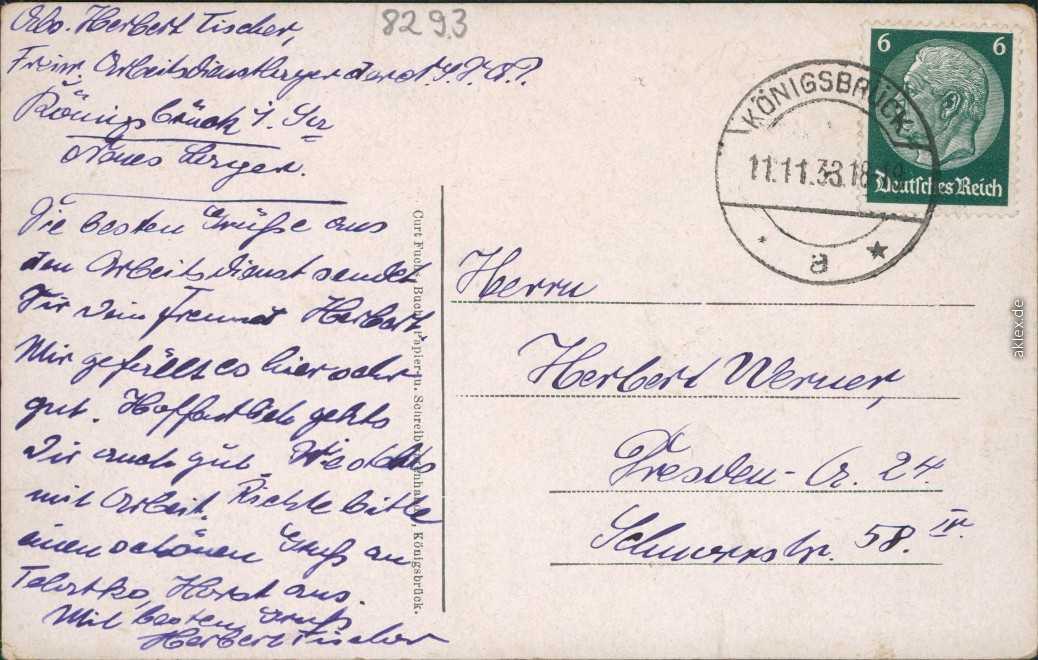 Abs. Herbert Tischer,
Freiw. Arbeitsdienstlager
Königsbrück i. Sa
Neues Lager.
Die besten Grüße aus
dem Arbeitsdienst sendet
Dir Dein Freund Herbert
Mir gefällt es hier sehr
gut. Hoffentlich gehts
Dir auch gut. Wie
mit Arbeit. Richte bitte
einen schönen Gruß an
Horst aus.
Mit besten Gruß
Herbert Tischer
8293
6 6
Deutsches Reich
KÖNIGSBRÜCK
11.11.33.18-19
a
Curt Fuchs, Buch-, Papier- u. Schreibwarenhandl., Königsbrück.
Herrn
Herbert Werner,
Dresden-A. 24.
Schnorrstr. 58. IV.
aklex.de